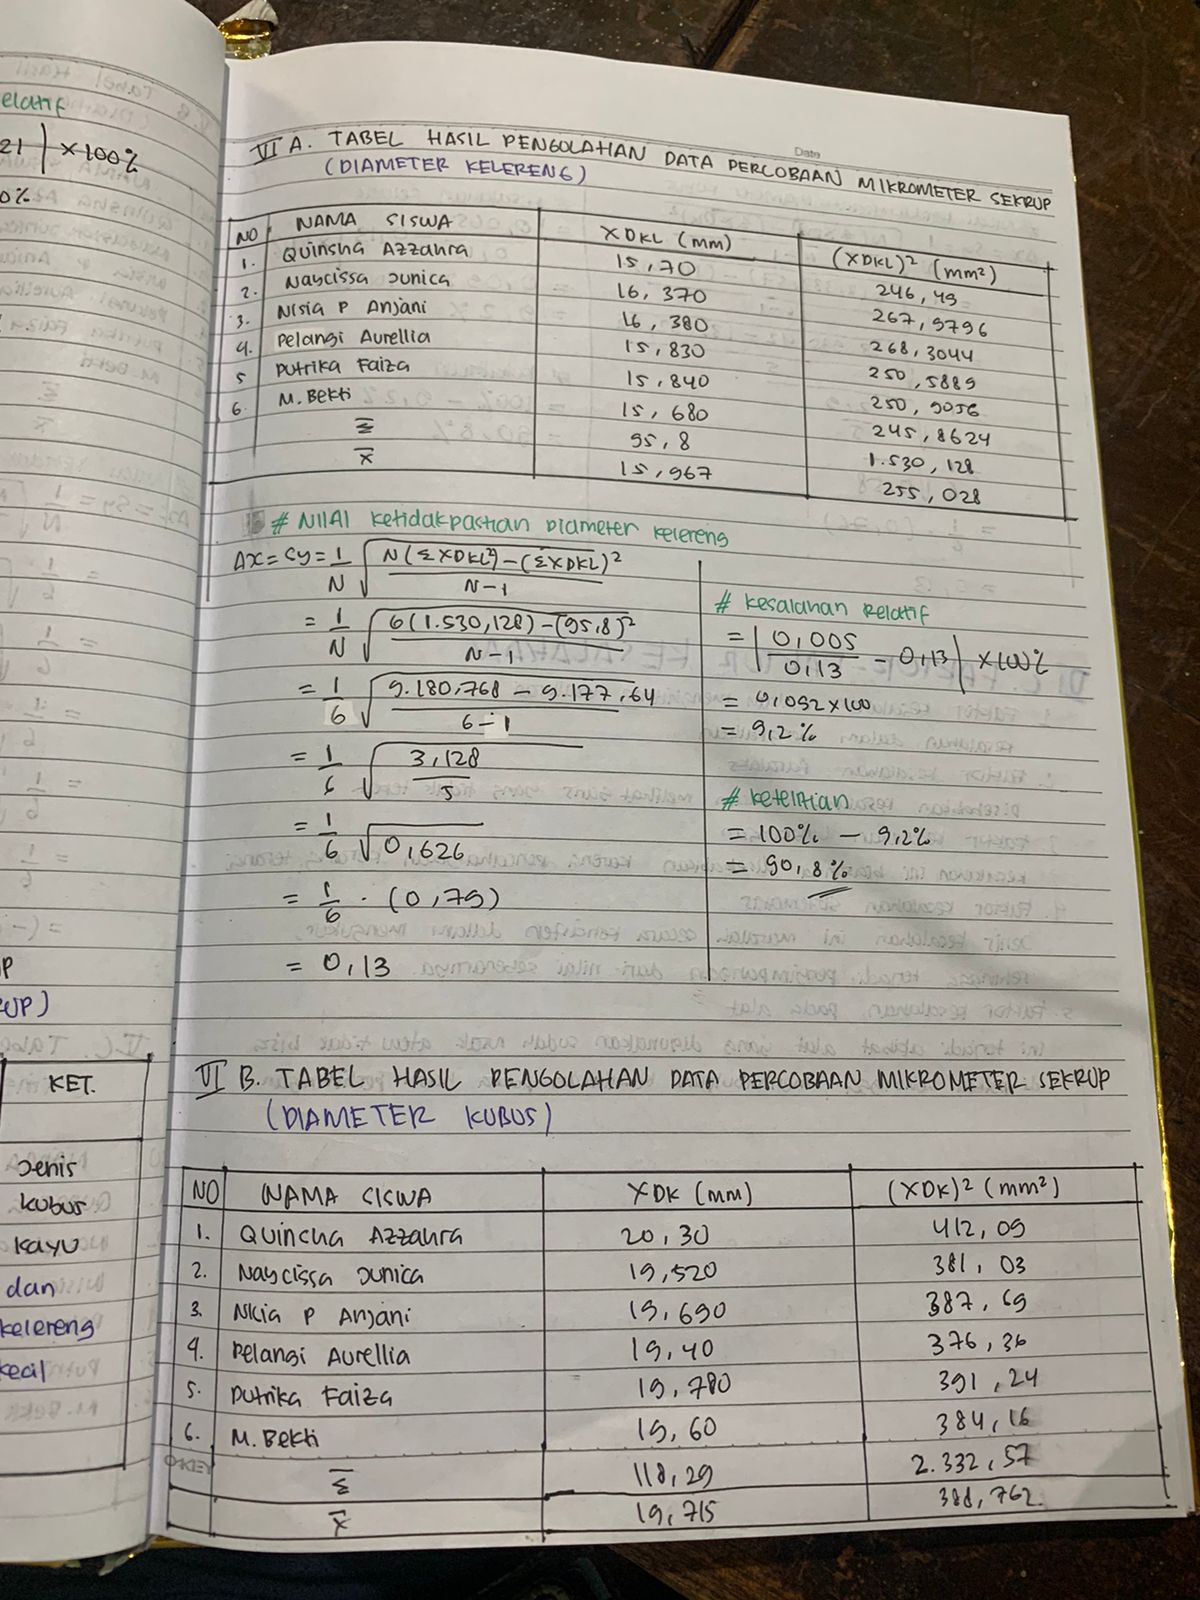 elatif
21 | × 100%
0%
P
UP)
KET.
Jenis
kubus
kayu
dan
kelereng
kecil
Date
VI A. TABEL HASIL PENGOLAHAN DATA PERCOBAAN MIKROMETER SEKRUP
(DIAMETER KELERENG)
NO NAMA SISWA XDKL (mm) (XDKL)² (mm²)
1. Quinsha Azzahra 15,70 246,49
2. Naycissa Junica 16,370 267,9796
3. Nisia P Anjani 16,380 268,3044
4. Pelangi Aurellia 15,830 250,5889
5 Putrika Faiza 15,840 250,9056
6. M. Bekti 15,680 245,8624
Σ 95,8 1.530,128
x̄ 15,967 255,028
# Nilai ketidakpastian Diameter kelereng
Δx = Sy = 1/N √(N(ΣXDKL²) - (ΣXDKL)²/N-1)
= 1/N √(6(1.530,128) - (95,8)²/N-1)
= 1/6 √(9.180,768 - 9.177,64/6-1)
= 1/6 √(3,128/5)
= 1/6 √0,626
= 1/6 . (0,79)
= 0,13
# Kesalahan Relatif
= | 0,005/0,13 - 0,13 | × 100%
= 0,092 × 100
= 9,2%
# Ketelitian
= 100% - 9,2%
= 90,8%
VI B. TABEL HASIL PENGOLAHAN DATA PERCOBAAN MIKROMETER SEKRUP
(DIAMETER KUBUS)
NO NAMA SISWA XDK (mm) (XDK)² (mm²)
1. Quinsha Azzahra 20,30 412,09
2. Naycissa Junica 19,520 381,03
3. Nisia P Anjani 19,690 387,69
4. Pelangi Aurellia 19,40 376,36
5. Putrika Faiza 19,780 391,24
6. M. Bekti 19,60 384,16
Σ 118,29 2.332,57
x̄ 19,715 388,762